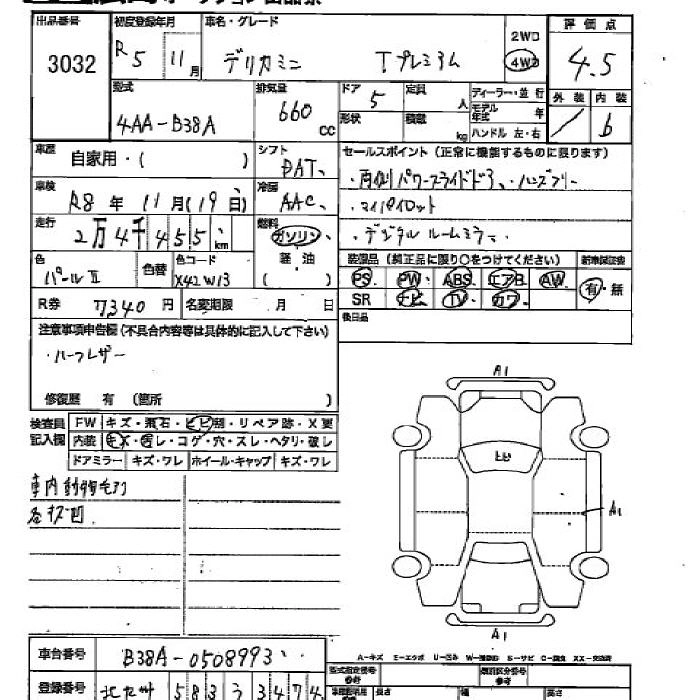 出品番号 3032
初度登録年月 R5 11月
車名・グレード デリカミニ Tプレミアム
2WD
4WD
評価点 4.5
外装 内装 6
型式 4AA-B38A
排気量 660cc
ドア 5
形状
定員 人
積載 kg
ディーラー・並行
モデル年式 年
ハンドル 左・右
車歴 自家用・( )
シフト DAT
セールスポイント (正常に機能するものに限ります)
・両側パワースライドドア、ハンズフリー
・マイパイロット
・デジタルルームミラー
車検 R8年11月(19日)
冷房 AAC
走行 2万4千455km
燃料 ガソリン 軽油 ( )
色 パールII
色替
色コード X42W13
装備品 (純正品に限り○をつけてください) 新車保証書
PS PW ABS エアB AW 有・無
SR ナビ TV カワ
R券 7,340円
名変期限 月 日
後日品
注意事項申告欄(不具合内容等は具体的に記入して下さい)
・ハーフレザー
修復歴 有 (箇所 )
検査員記入欄
FW キズ・飛石・ヒビ割・リペア跡・X要
内装 キズ・汚レ・コゲ・穴・スレ・ヘタリ・破レ
ドアミラー キズ・ワレ ホイール・キャップ キズ・ワレ
車内動物毛有
各キズ凹
A1
ヒビ
A1
A1
車台番号 B38A-0508993
A-キズ E-エクボ U-凹み S-サビ C-腐食 XX-交換済
型式指定番号 参考
類別区分番号 参考
登録番号 北九州 583 う 3474
長さ 幅 高さ